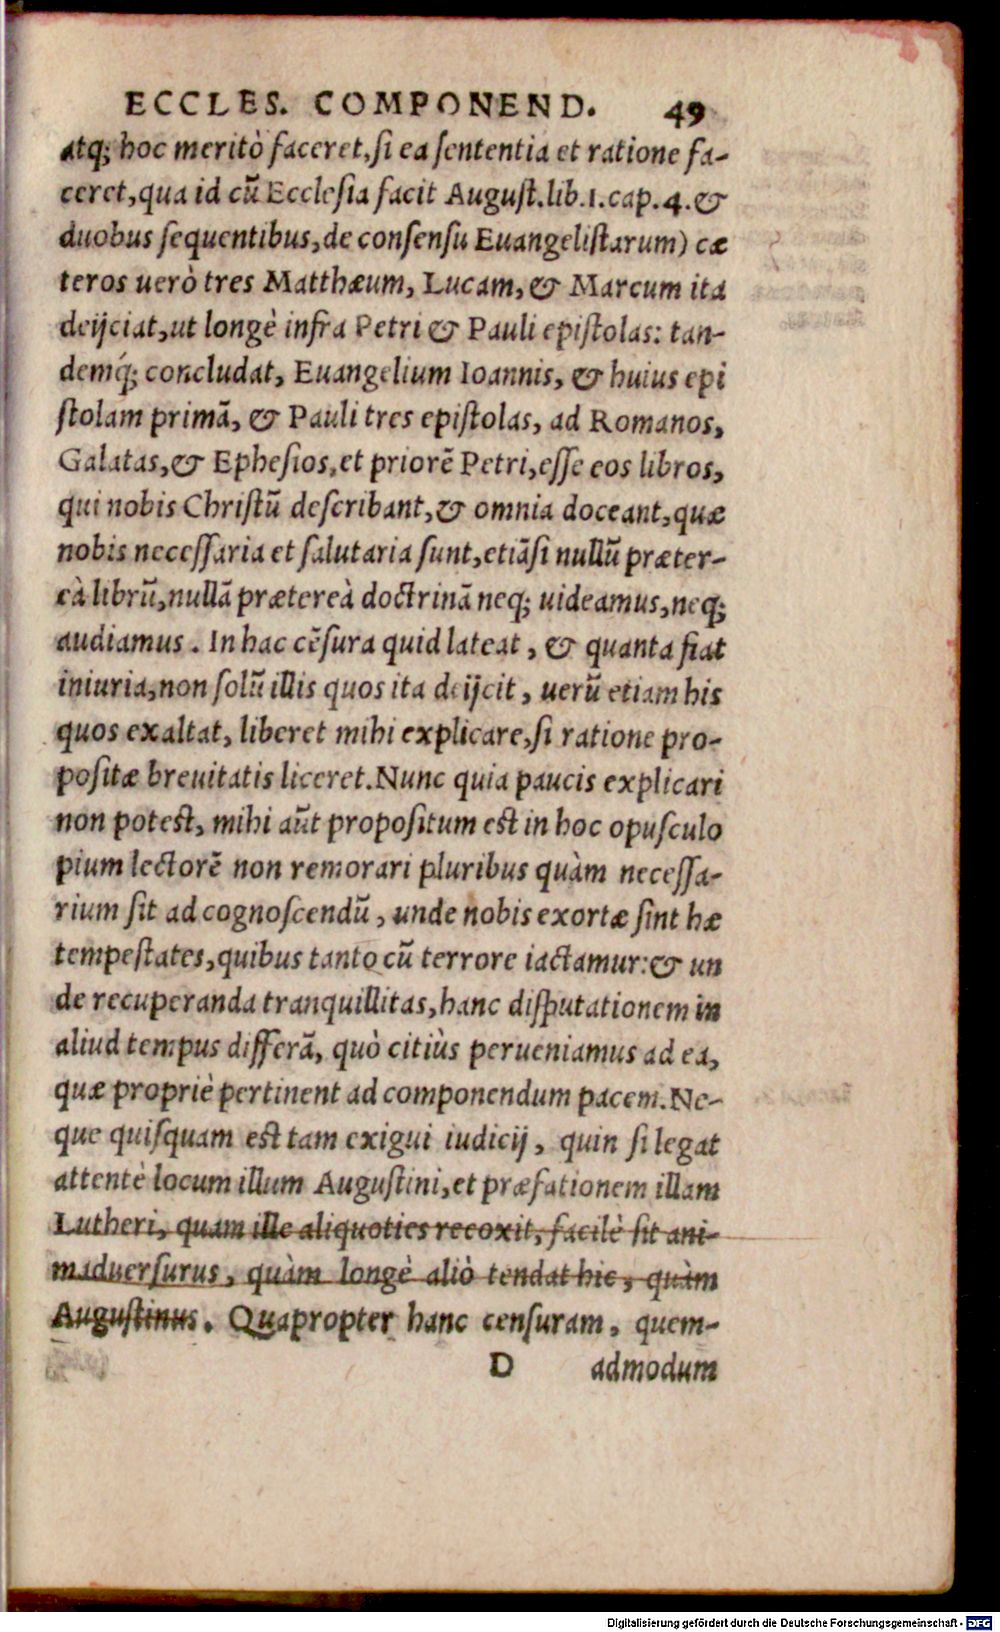 ECCLES. COMPONEND. 49
atq; hoc meritò faceret, si ea sententia et ratione fa-
ceret, qua id cũ Ecclesia facit August. lib. 1. cap. 4. &
duobus sequentibus, de consensu Euangelistarum) cæ
teros uerò tres Matthæum, Lucam, & Marcum ita
deijciat, ut longè infra Petri & Pauli epistolas: tan-
demq́; concludat, Euangelium Ioannis, & huius epi
stolam primã, & Pauli tres epistolas, ad Romanos,
Galatas, & Ephesios, et priorẽ Petri, esse eos libros,
qui nobis Christũ describant, & omnia doceant, quæ
nobis necessaria et salutaria sunt, etiãsi nullũ præter-
eà librũ, nullã prætereà doctrinã neq; uideamus, neq;
audiamus. In hac cẽsura quid lateat, & quanta fiat
iniuria, non solũ illis quos ita deijcit, uerũ etiam his
quos exaltat, liberet mihi explicare, si ratione pro-
positæ breuitatis liceret. Nunc quia paucis explicari
non potest, mihi aũt propositum est in hoc opusculo
pium lectorẽ non remorari pluribus quàm necessa-
rium sit ad cognoscendũ, unde nobis exortæ sint hæ
tempestates, quibus tanto cũ terrore iactamur: & un
de recuperanda tranquillitas, hanc disputationem in
aliud tempus differã, quò citiùs perueniamus ad ea,
quæ propriè pertinent ad componendum pacem. Ne-
que quisquam est tam exigui iudicij, quin si legat
attentè locum illum Augustini, et præfationem illam
Lutheri, quam ille aliquoties recoxit, facilè sit ani-
maduersurus, quàm longè aliò tendat hic, quàm
Augustinus. Quapropter hanc censuram, quem-
D admodum
Digitalisierung gefördert durch die Deutsche Forschungsgemeinschaft - DFG